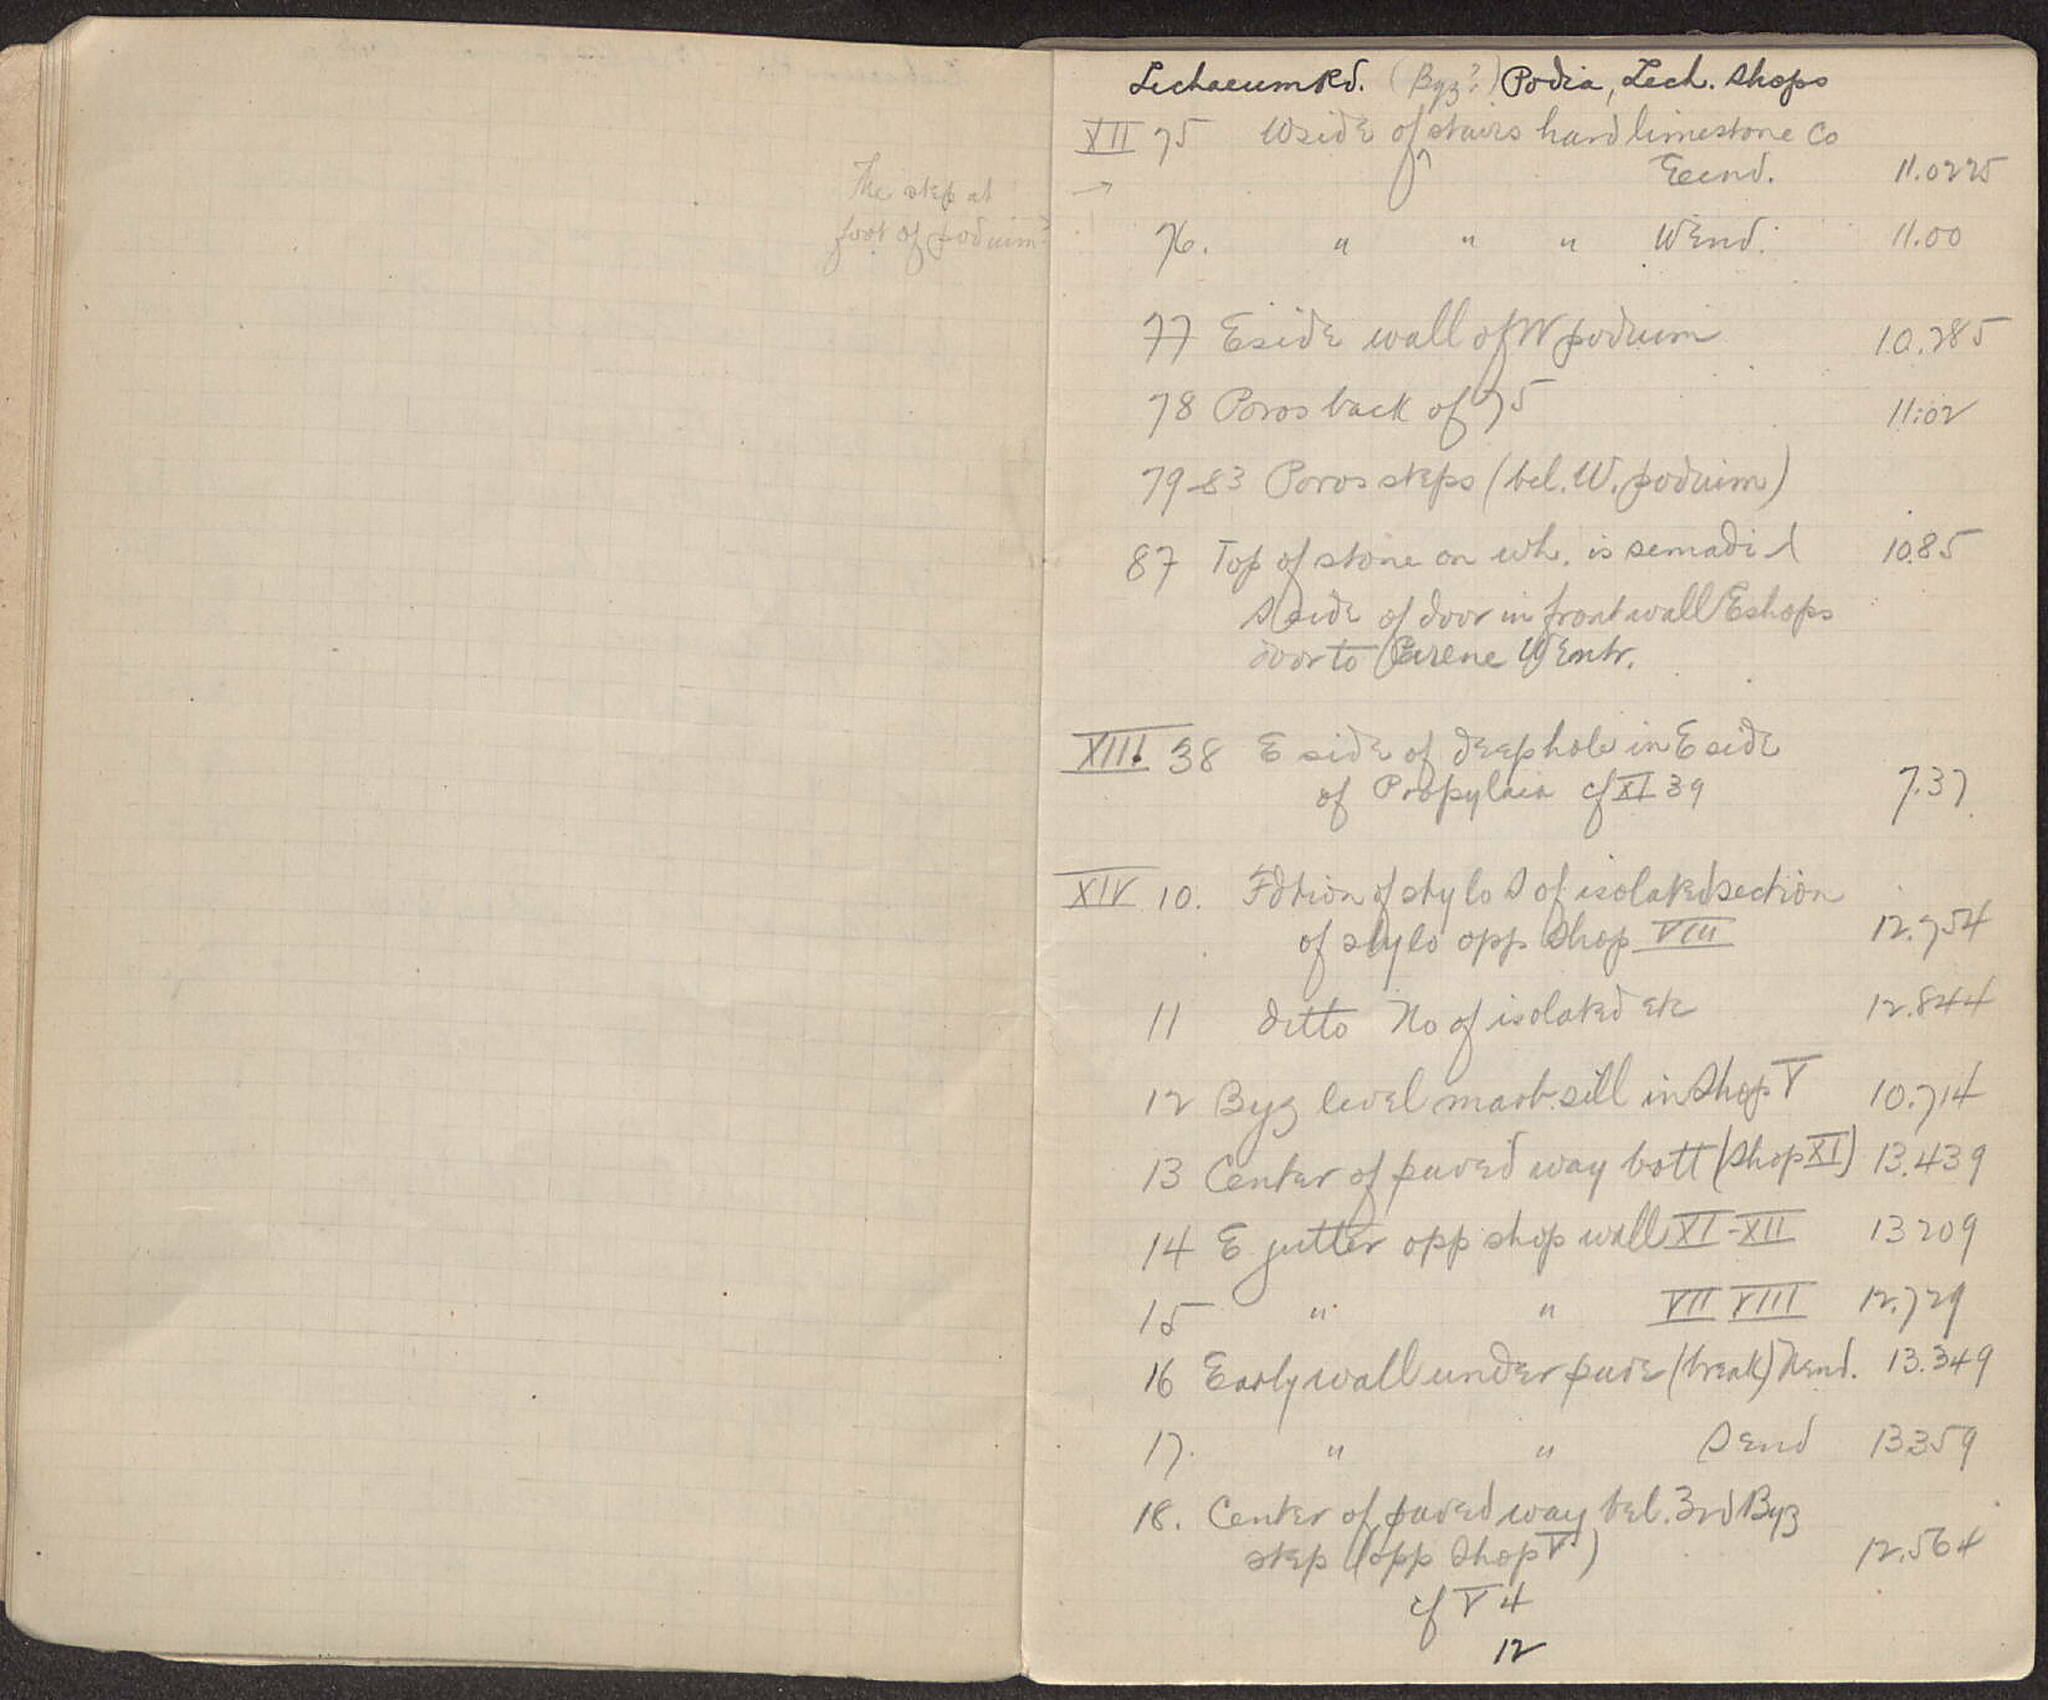 The step at
foot of podium?
Lechaeum Rd. (Byz?) Podia, Lech. Shops
XII 75 W side of stairs hard limestone Co
→ E end. 11.0225
76. " " " W End. 11.00
77 E side wall of W podium 10.785
78 Poros back of 75 11.02
79-83 Poros steps (bel. W. podium)
87 Top of stone on wh. is semadi 10.85
S side of door in front wall E shops
door to Peirene W Entr.
XIII 38 E side of deep hole in E side
of Propylaia cf XI 39 7.37
XIV 10. Fdtion of stylo S of isolated section
of stylo opp Shop VIII 12.754
11 ditto No of isolated etc 12.844
12 Byz level marb. sill in Shop V 10.714
13 Center of paved way bott (Shop XI) 13.439
14 E gutter opp shop wall XI-XII 13209
15 " " VII VIII 12.729
16 Early wall under pave (break) N end. 13.349
17. " " S End 13359
18. Center of paved way bel. 3rd Byz
step (opp Shop V) 12.564
cf V 4
12